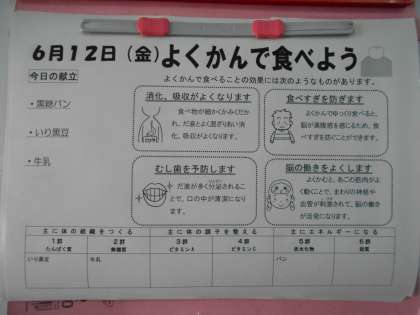 6月12日(金)よくかんで食べよう
今日の献立
よくかんで食べることの効果には次のようなものがあります。
・黒糖パン
・いり黒豆
・牛乳
消化、吸収がよくなります
食べ物が細かくかみくだかれ、だ液とよく混ざりあい消化、吸収がよくなります。
食べすぎを防ぎます
よくかんでゆっくり食べると、脳が満腹感を感じるため、食べすぎを防ぐことができます。
むし歯を予防します
だ液が多く分泌されることで、口の中が清潔になります。
脳の働きをよくします
よくかむと、あごの筋肉がよく動くことで、まわりの神経や血管が刺激されて、脳の働きが活発になります。
主に体の組織をつくる
主に体の調子を整える
主にエネルギーになる
1群 2群 3群 4群 5群 6群
たんぱく質 無機質 ビタミンA ビタミンC 炭水化物 脂質
いり黒豆 牛乳 パン